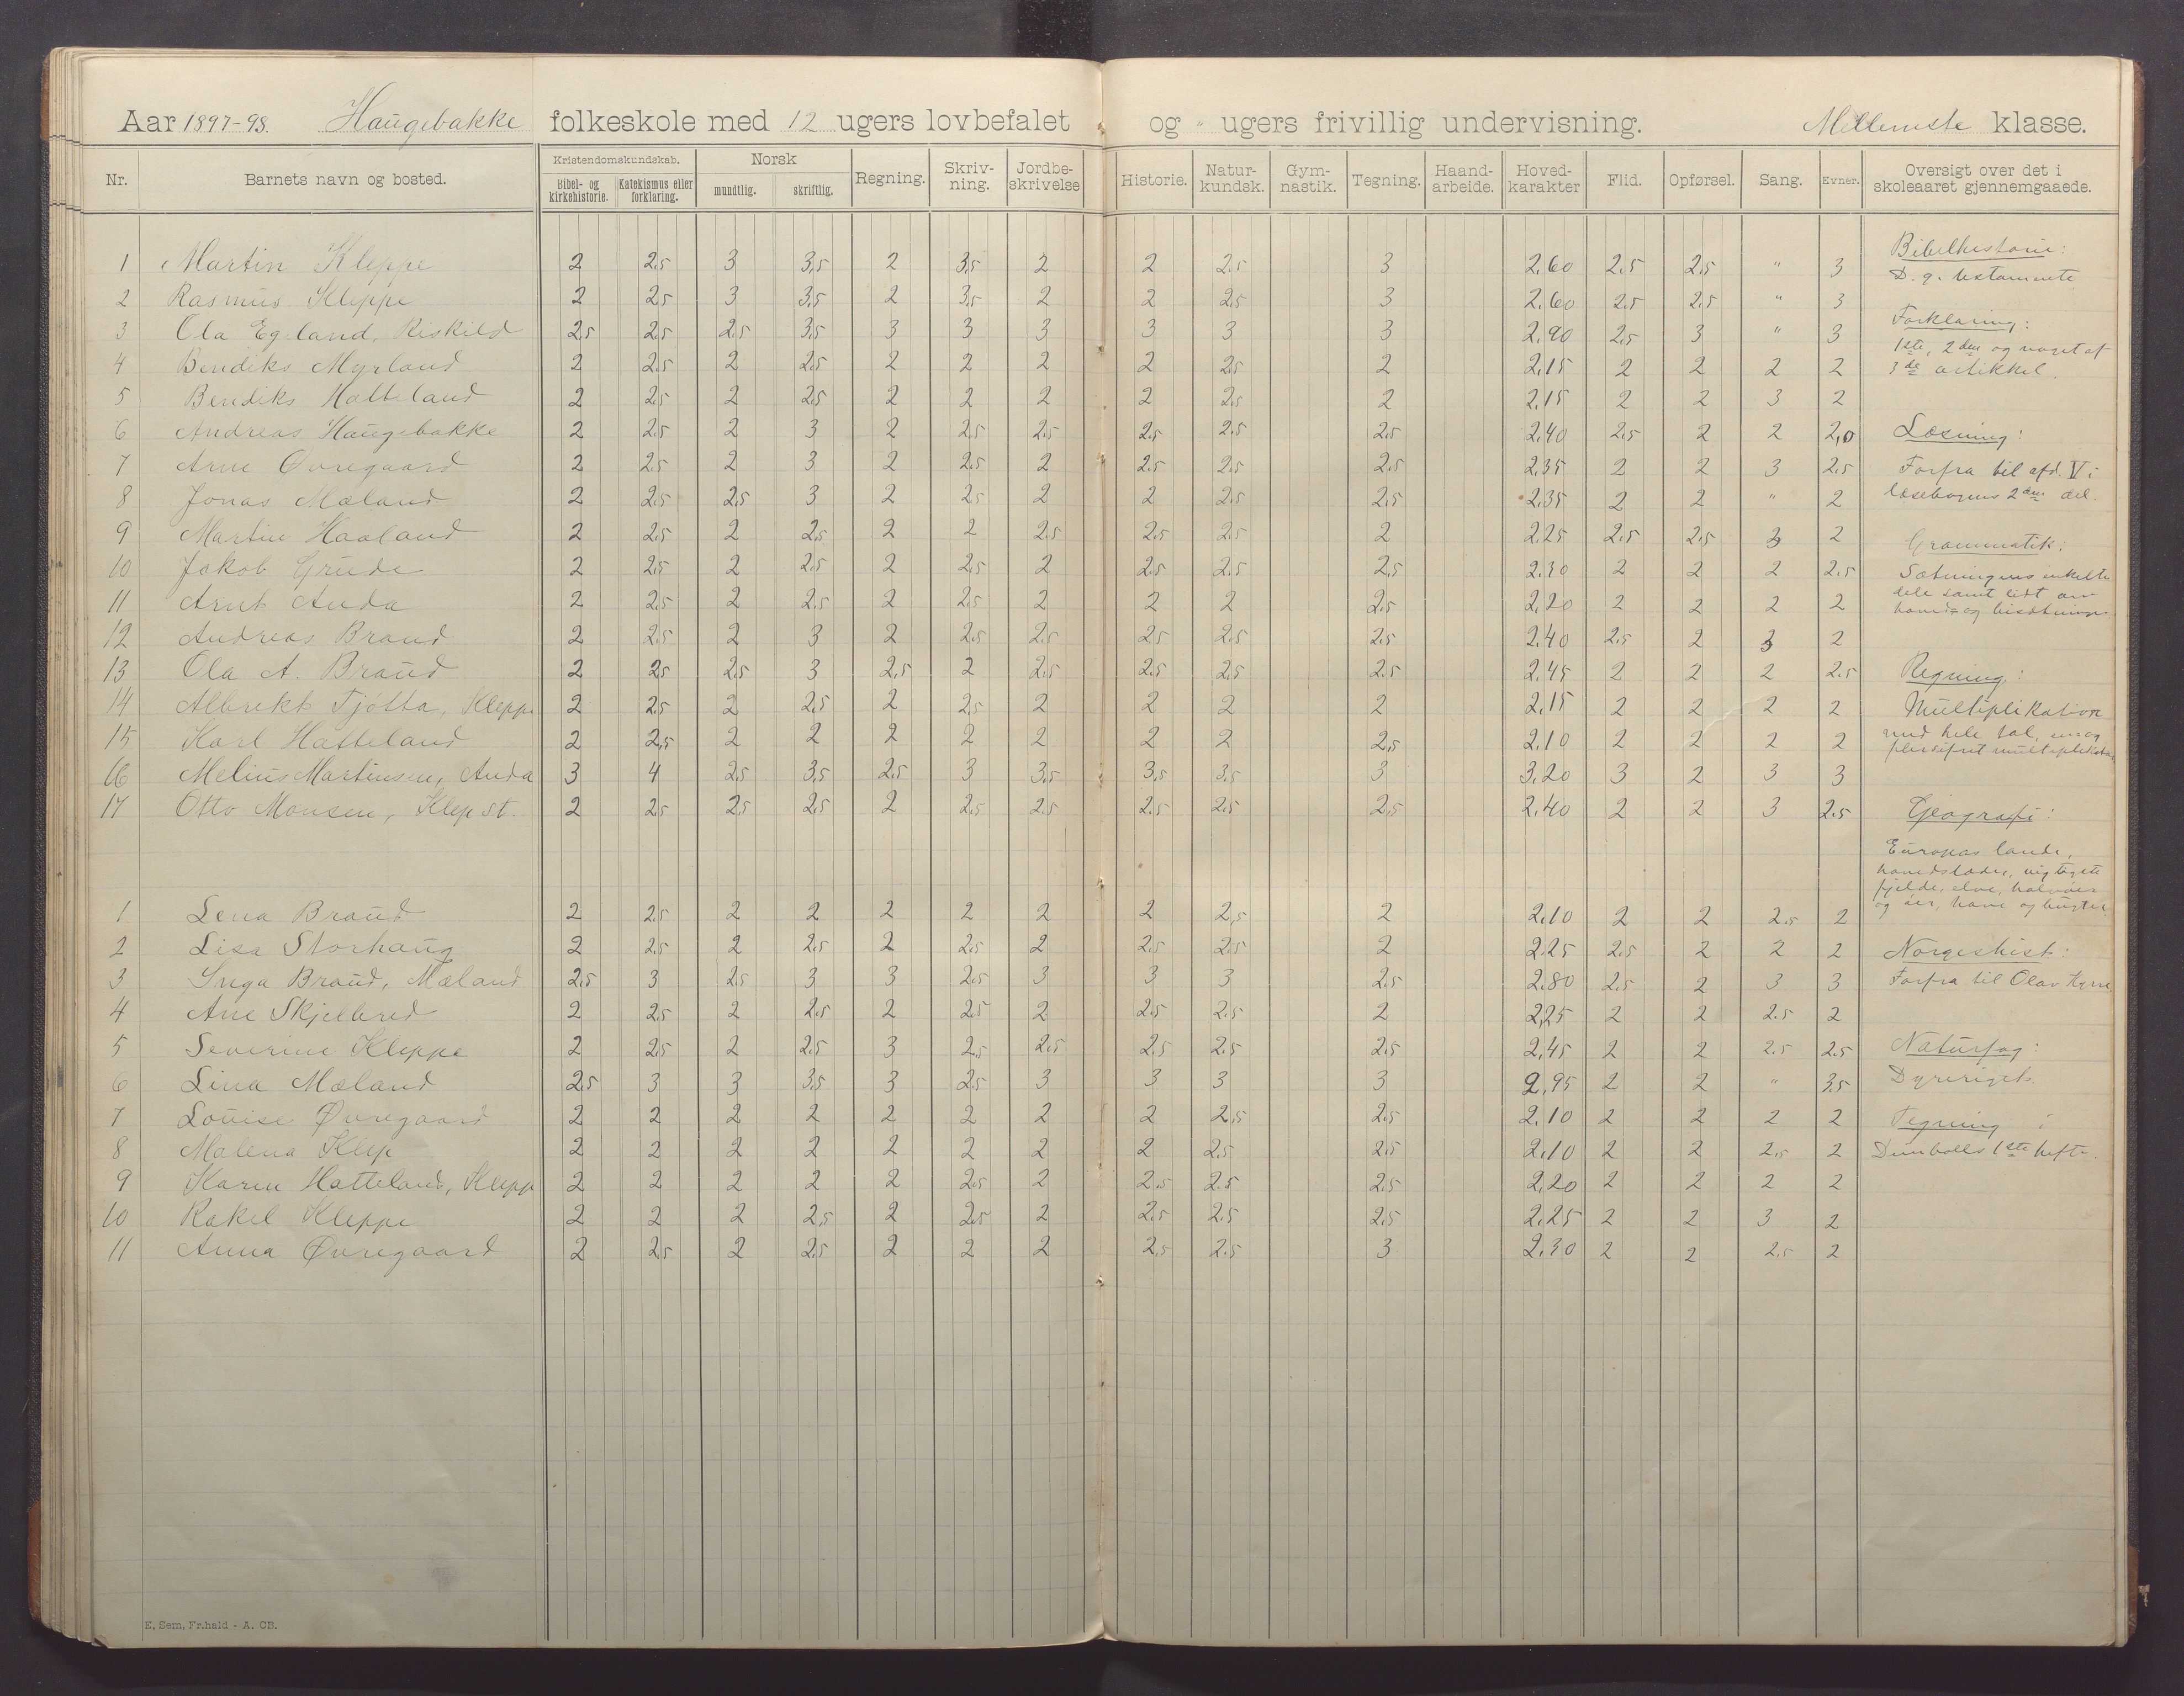 Aar 1897-98. Haugebakke folkeskole med 12 ugers lovbefalet og " ugers frivillig undervisning. Mellemste klasse.
Nr. Barnets navn og bosted. Kristendomskundskab. Bibel- og kirkehistorie. Katekismus eller forklaring. Norsk mundtlig. skriftlig. Regning. Skriv-ning. Jordbe-skrivelse Historie. Natur-kundsk. Gym-nastik. Tegning. Haand-arbeide. Hoved-karakter Flid. Opførsel. Sang. Evner. Oversigt over det i skoleaaret gjennemgaaede.
1 Martin Kleppe 2 2.5 3 3,5 2 3,5 2 2 2.5 3 2,60 2.5 2.5 " 3
2 Rasmus Kleppe 2 2.5 3 3,5 2 3,5 2 2 2.5 3 2.60 2.5 2.5 " 3
3 Ola Egeland, Riskild 2,5 2.5 2.5 3,5 3 3 3 3 3 3 2,90 2.5 3 " 3
4 Bendiks Myrland 2 2.5 2 2.5 2 2 2 2 2.5 2 2,15 2 2 2 2
5 Bendiks Hatteland 2 2.5 2 2.5 2 2 2 2 2.5 2 2,15 2 2 3 2
6 Andreas Haugebakke 2 2.5 2 3 2 2.5 2.5 2.5 2.5 2.5 2.40 2.5 2 2 2,0
7 Arne Øvregaard 2 2.5 2 3 2 2.5 2 2.5 2.5 2.5 2,35 2 2 3 2.5
8 Jonas Mæland 2 2.5 2.5 3 2 2.5 2 2 2.5 2.5 2,35 2 2 " 2
9 Martin Haaland 2 2.5 2 2.5 2 2 2.5 2.5 2.5 2 2.25 2.5 2.5 3 2
10 Jakob Grude 2 2.5 2 2.5 2 2.5 2 2.5 2.5 2,5 2.30 2 2 2 2.5
11 Arnt Anda 2 2.5 2 2.5 2 2.5 2 2 2 2.5 2,20 2 2 2 2
12 Andreas Braud 2 2.5 2 3 2 2.5 2.5 2.5 2.5 2.5 2.40 2.5 2 3 2
13 Ola A. Braud 2 2.5 2.5 3 2,5 2 2.5 2.5 2.5 2.5 2.45 2 2 2 2.5
14 Albrekt Tjøtta, Kleppe 2 2.5 2 2.5 2 2.5 2 2 2 2 2.15 2 2 2 2
15 Karl Hatteland 2 2,5 2 2 2 2 2 2 2 2,5 2,10 2 2 2 2
16 Melius Martinsen, Anda 3 4 2.5 3,5 2.5 3 3,5 3,5 3.5 3 3,20 3 2 3 3
17 Otto Monsen, Klep st. 2 2.5 2,5 2.5 2 2.5 2.5 2.5 2.5 2.5 2.40 2 2 3 2.5
1. Lena Braud 2 2.5 2 2 2 2 2 2 2,5 2 2.10 2 2 2.5 2
2 Lisa Storhaug 2 2.5 2 2.5 2 2.5 2 2.5 2.5 2 2.25 2.5 2 2 2
3 Inga Braud, Mæland 2,5 3 2.5 3 3 2.5 3 3 3 2.5 2.80 2.5 2 3 3
4 Ane Skjelbred 2 2.5 2 2.5 2 2.5 2 2.5 2.5 2 2,25 2 2 2.5 2
5 Severine Kleppe 2 2.5 2 2.5 3 2.5 2.5 2.5 2.5 2.5 2,45 2 2 2.5 2.5
6 Lina Mæland 2.5 3 3 3,5 3 2.5 3 3 3 3 2,95 2 2 " 3.5
7 Louise Øvregaard 2 2 2 2 2 2 2 2 2,5 2.5 2.10 2 2 2 2
8 Malena Klep 2 2 2 2 2 2 2 2 2.5 2.5 2,10 2 2 2.5 2
9 Karen Hatteland, Klepp 2 2 2 2 2 2.5 2 2.5 2.5 2.5 2.20 2 2 2 2
10 Rakel Kleppe 2 2 2 2,5 2 2.5 2 2.5 2.5 2.5 2.25 2 2 3 2
11 Anna Øvregaard 2 2.5 2 2.5 2 2 2 2.5 2.5 3 2.30 2 2 2.5 2
Bibelhistorie:
D. g. testamente
Forklaring:
1ste, 2den og noget af
3de artikkel.
Læsning:
Forfra til afd. V i
læsebogens 2den del.
Grammatik:
Sætningens enkelte
dele samt lidt om
hoved- og bisætninger
Regning:
Multiplikation
med hele tal, en og
flersifret multiplikator
Geografi:
Europas lande,
hovedstæder, vigtigste
fjelde, elve, halvøer
og øer, have og bugter.
Norgeshist:
Forfra til Olav Kyrre
Naturfag:
Dyreriget
Tegning:
1ste hefte.
E. Sem, Fr.hald - A. CB.